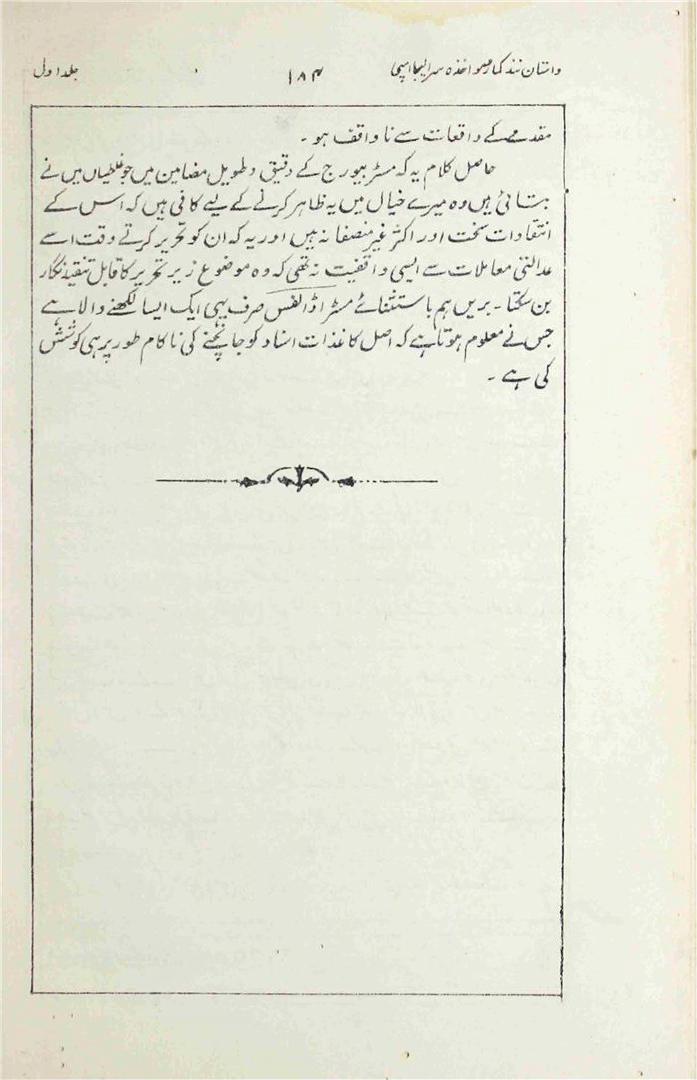 داستان نند کمار و مواخذہ سر ایلجا امپی ۱۸۴ جلد اول
مقدمے کے واقعات سے نا واقف ہو ۔
حاصل کلام یہ کہ مسٹر بیورج کے دقیق و طویل مضامین میں جو غلطیاں میں نے
بتائی ہیں وہ میرے خیال میں یہ ظاہر کرنے کے لیے کافی ہیں کہ اس کے
انتقادات سخت اور اکثر غیر منصفانہ ہیں اور یہ کہ ان کو تحریر کرتے وقت اسے
عدالتی معاملات سے ایسی واقفیت نہ تھی کہ وہ موضوع زیر تحریر کا قابل تنقید نگار
بن سکتا ۔ بریں ہم باستثنائے مسٹر اڈالفس صرف یہی ایک ایسا لکھنے والا ہے
جس نے معلوم ہوتا ہے کہ اصل کاغذات اسناد کو جانچنے کی نا کام طور پر ہی کوشش
کی ہے ۔